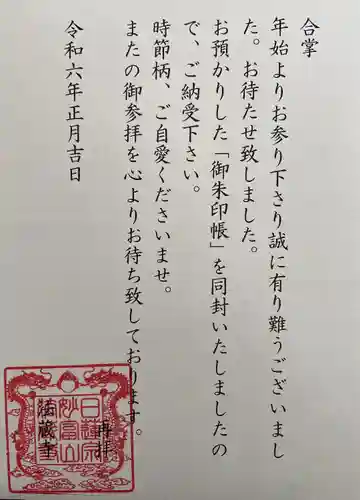 合掌
年始よりお参り下さり誠に有り難うございまし
た。お待たせ致しました。
お預かりした「御朱印帳」を同封いたしましたの
で、ご納受下さい。
時節柄、ご自愛くださいませ。
またの御参拝を心よりお待ち致しております。
令和六年正月吉日
日蓮宗
妙高山
法蔵寺
再拝